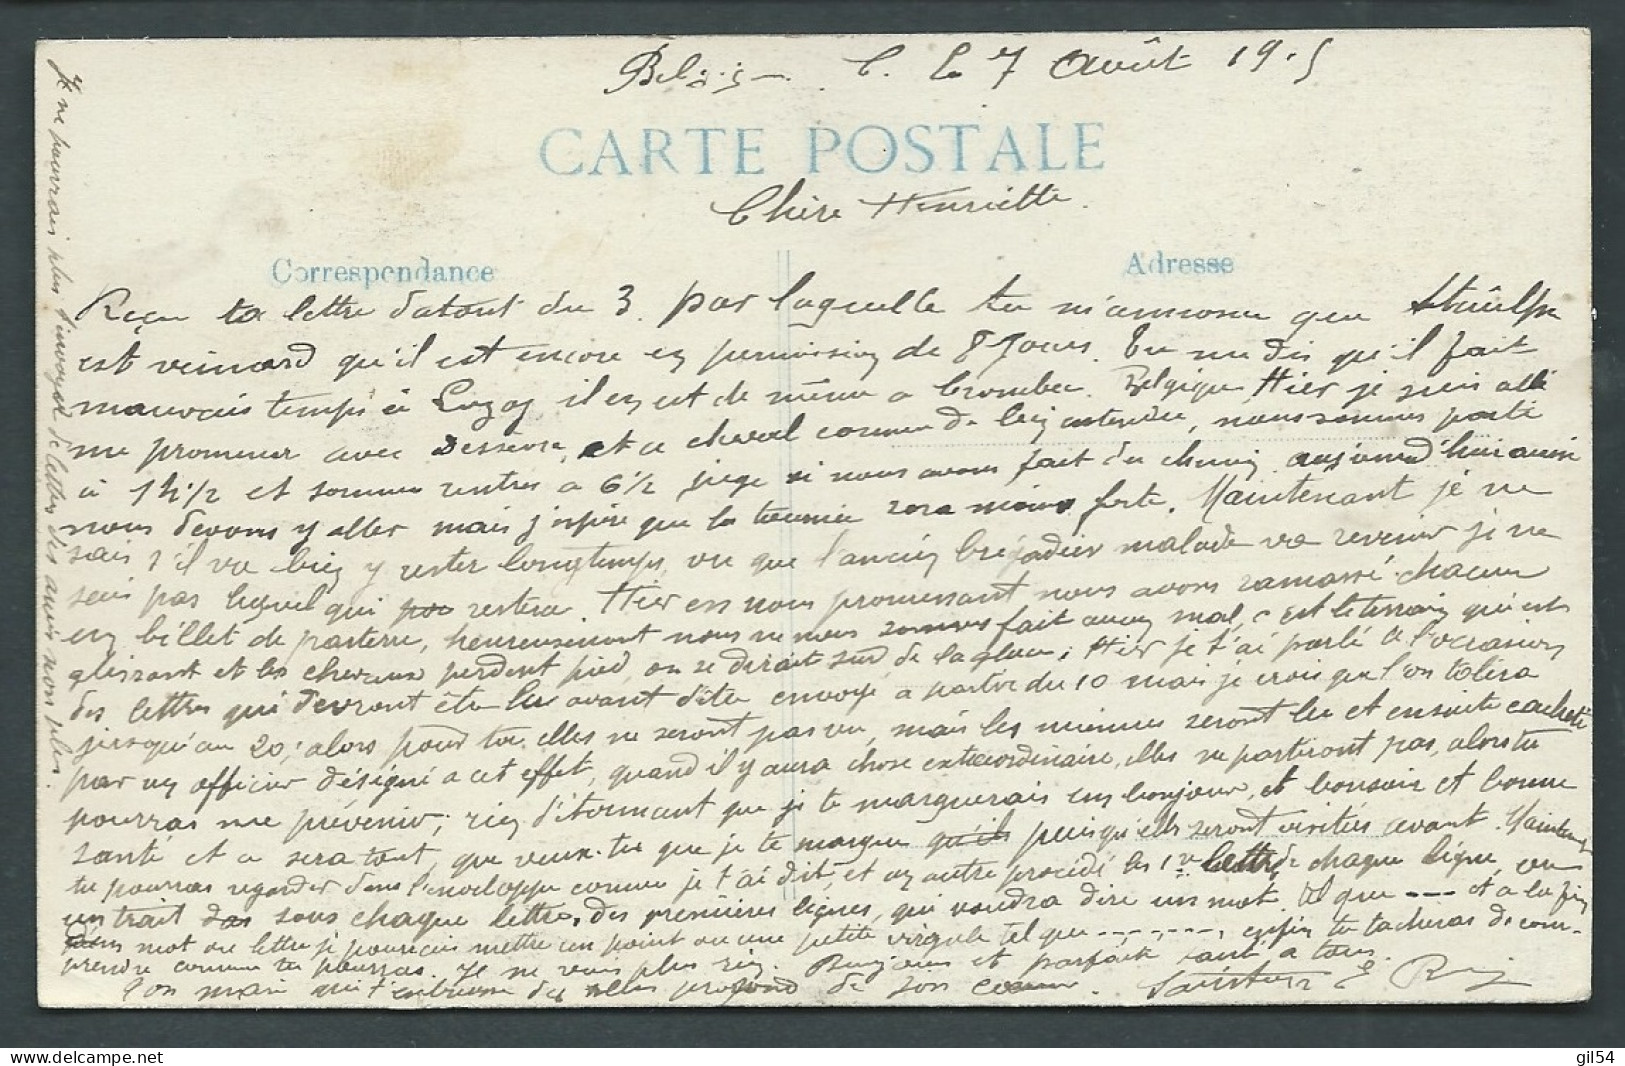 Le 7 Août 19.5
CARTE POSTALE
Chère Henriette.
Correspondance
Adresse
Reçu ta lettre datant du 3. par laquelle tu m'annonce que
est veinard qu'il est encore en permission de 8 Jours. Tu me dis qu'il fait
mauvais temps à il en est de même a Crombec. Belgique Hier je suis allé
me promener avec et a cheval comme de bien entendu, nous sommes parti
à 1h 1/2 et sommes rentrés a 6 1/2 juge si nous avons fait du chemin aujourd'hui aussi
nous devons y aller mais j'espère que la tournée sera moins forte. Maintenant je ne
sais s'il va bien y rester longtemps, vu que l'ancien brigadier malade va revenir je ne
sais pas lequel qui restera. Hier en nous promenant nous avons ramassé chacun
un billet de parterre, heureusement nous ne nous sommes fait aucun mal, c'est le terrain qui est
glissant et les chevaux perdent pied, on se dirait sur de la glace. Hier je t'ai parlé a l'occasion
des lettres qui devront être lu avant d'être envoyé, a partir du 10 mais je crois que l'on tolèra
jusqu'au 20; alors pour toi elles ne seront pas vu, mais les miennes seront lu et ensuite cacheté
par un officier désigné a cet effet, quand il y aura chose extraordinaire, elles ne partiront pas, alors tu
pourras me prévenir; rien d'étonnant que je te marquerais un bonjour, et bonsoir et bonne
santé et ce sera tout, que veux-tu que je te marque qu'ils puisqu'elles seront visitées avant. Maintenant
tu pourras regarder dans l'enveloppe comme je t'ai dit, et un autre procédé les 1re lettres de chaque ligne, ou
un trait sous chaque lettres, des premières lignes, qui voudra dire un mot. Tel que --- et a la fin
mot ou lettre je pourrais mettre un point ou une petite virgule tel que ---.--.--, enfin tu tacheras de com-
prendre comme tu pourras. Je ne vois plus rien. Bonjour et parfaite santé a tous.
Ton mari qui t'embrasse du plus profond de son cœur.
Je ne pourrais plus t'envoyer de lettres des amis non plus.
gil54